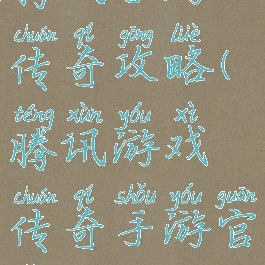 chuán qí gōng lüè
传奇攻略(
téng xùn yóu xì
腾讯游戏
chuán qí shǒu yóu guān
传奇手游官